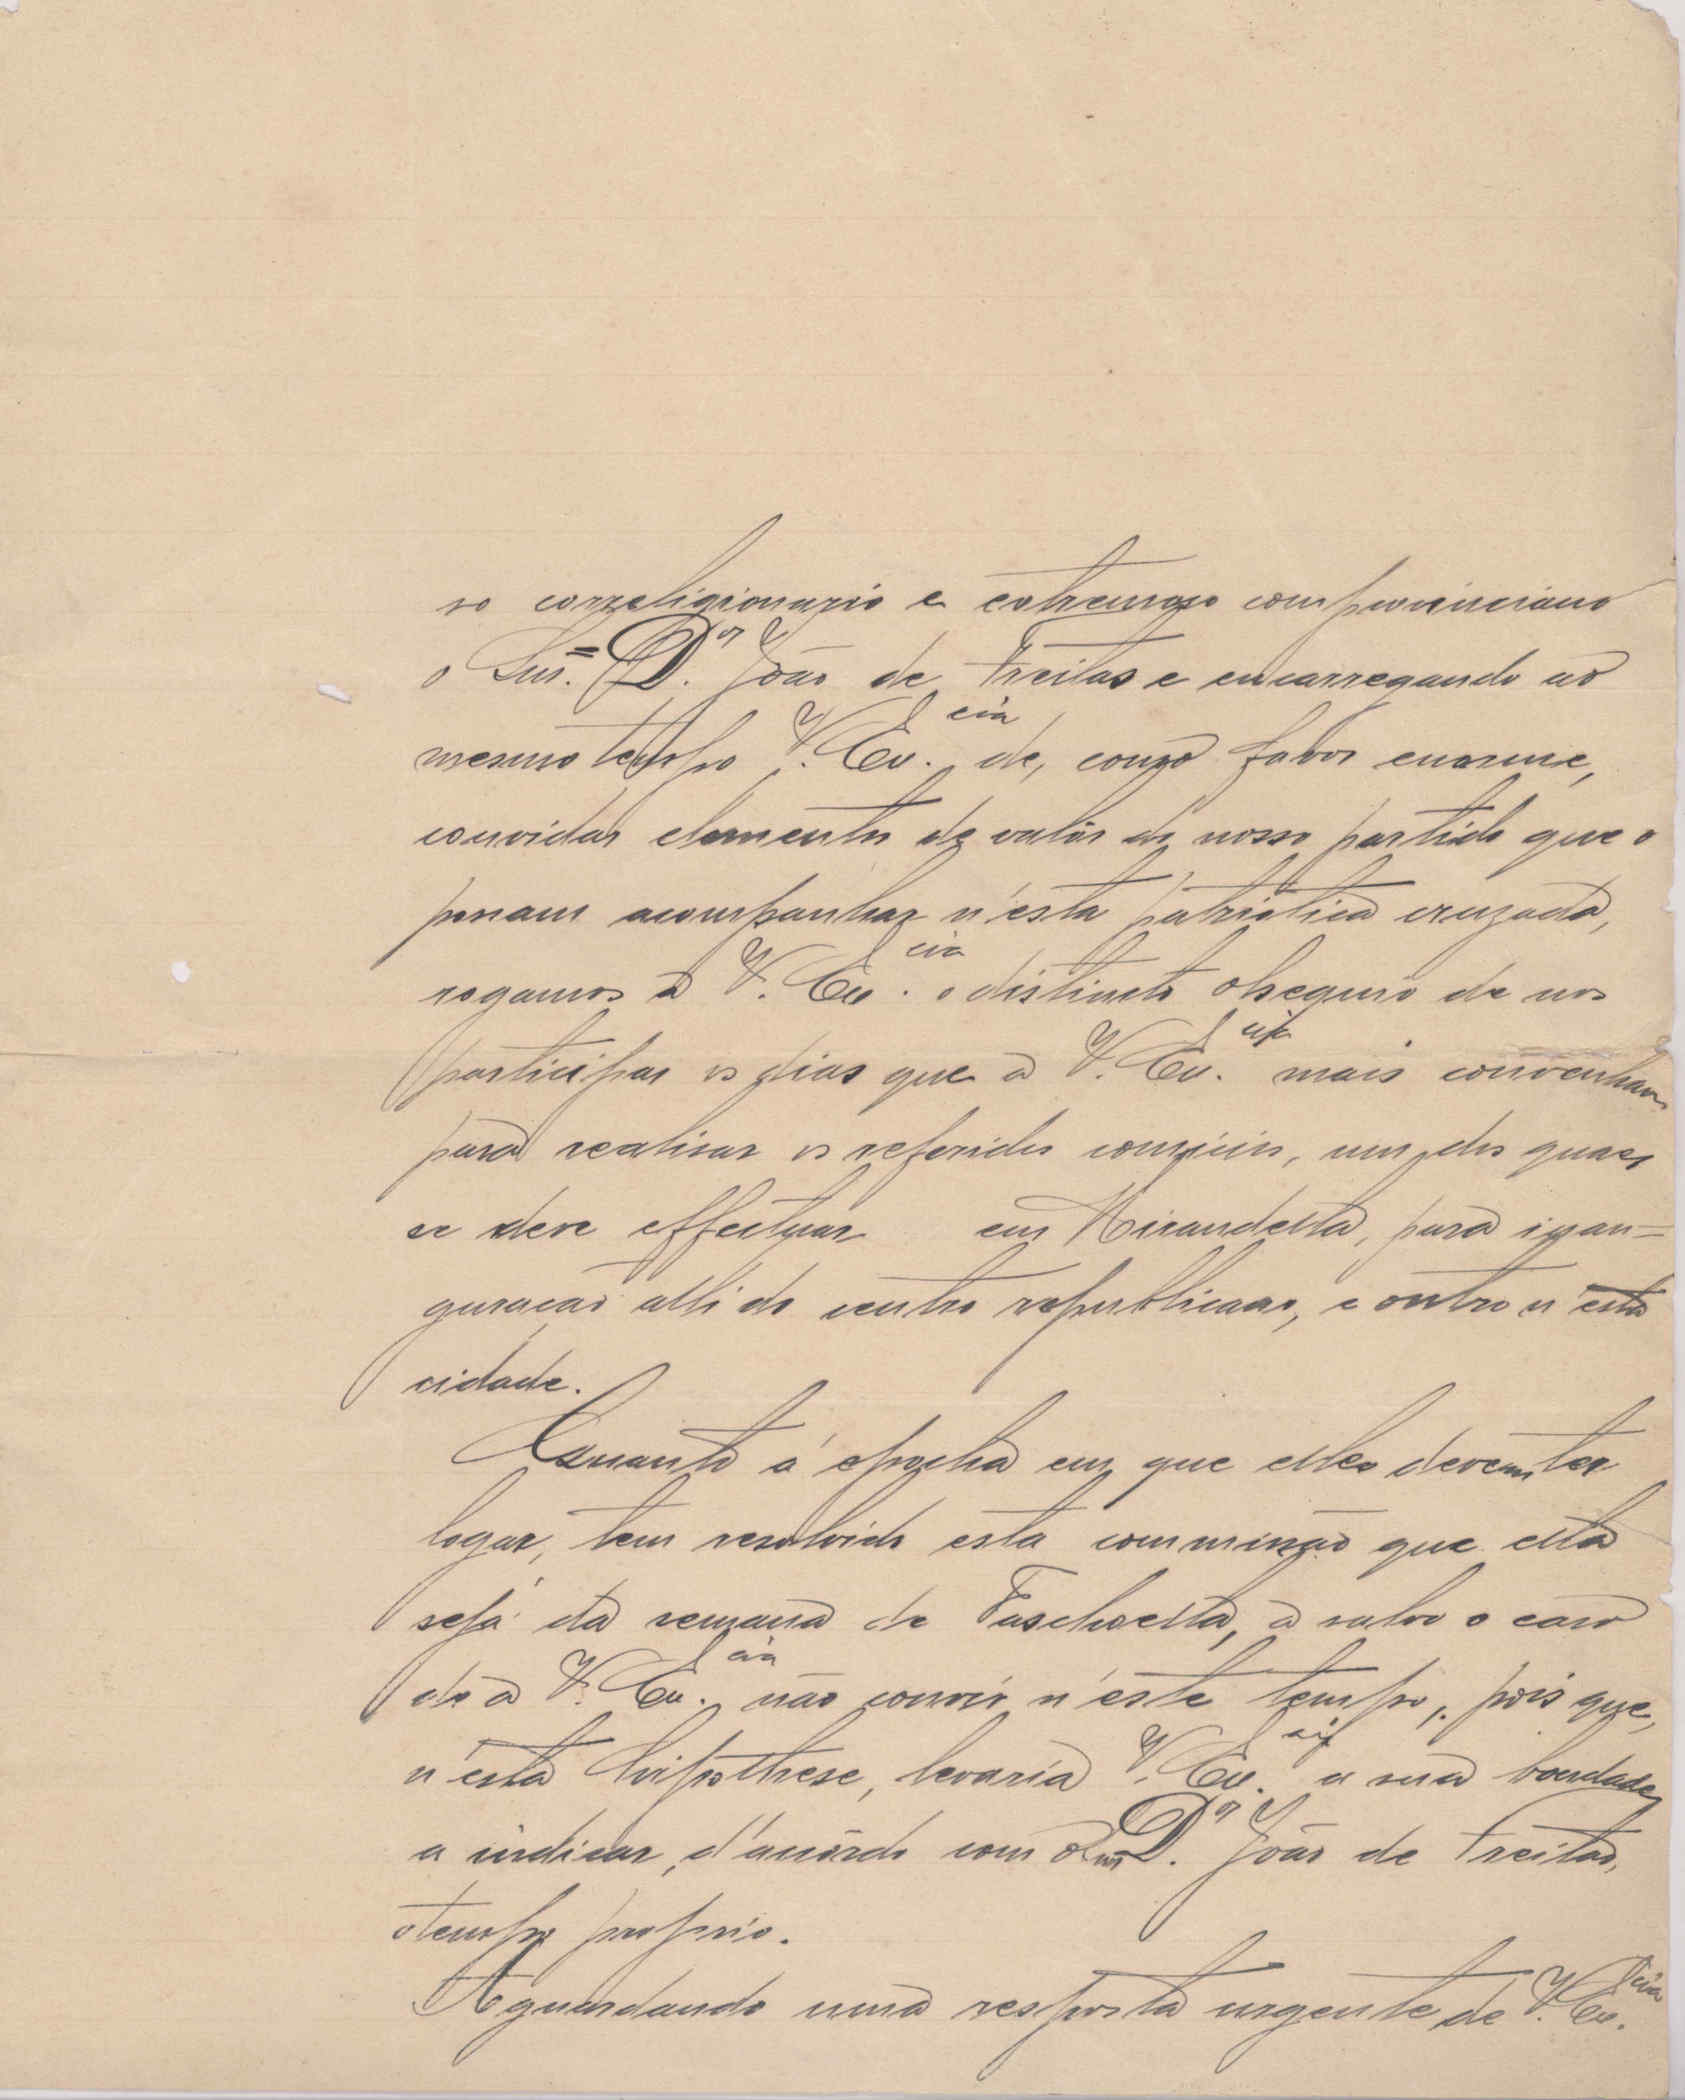 so correligionario e extremoso comprovinciano
o Snr. Dor João de Freitas e encarregando ao
mesmo tempo V. Ex.cia de, como favor enorme,
convidar elementos de valôr do nosso partido que o
possam acompanhar n'esta patriotica cruzada,
rogamos a V. Ex.cia o distincto obsequio de nos
participar os dias que a V. Ex.cia mais convenham
para realisar os referidos comicios, um dos quaes
se deve effectuar em Mirandella, para inau=
guração alli do centro republicano, e outro n'esta
cidade.
Quanto á epocha em que elles devem ter
logar, tem resolvido esta commissão que ella
seja da semana de Paschoella, a salvo o caso
de a V. Ex.cia não convir n'este tempo, pois que,
n'esta hipothese, levaria V. Ex.cia a sua bondade
a indicar, d'acôrdo com o Snr D.or João de Freitas,
o tempo proprio.
Aguardando uma resposta urgente de V. Ex.cia